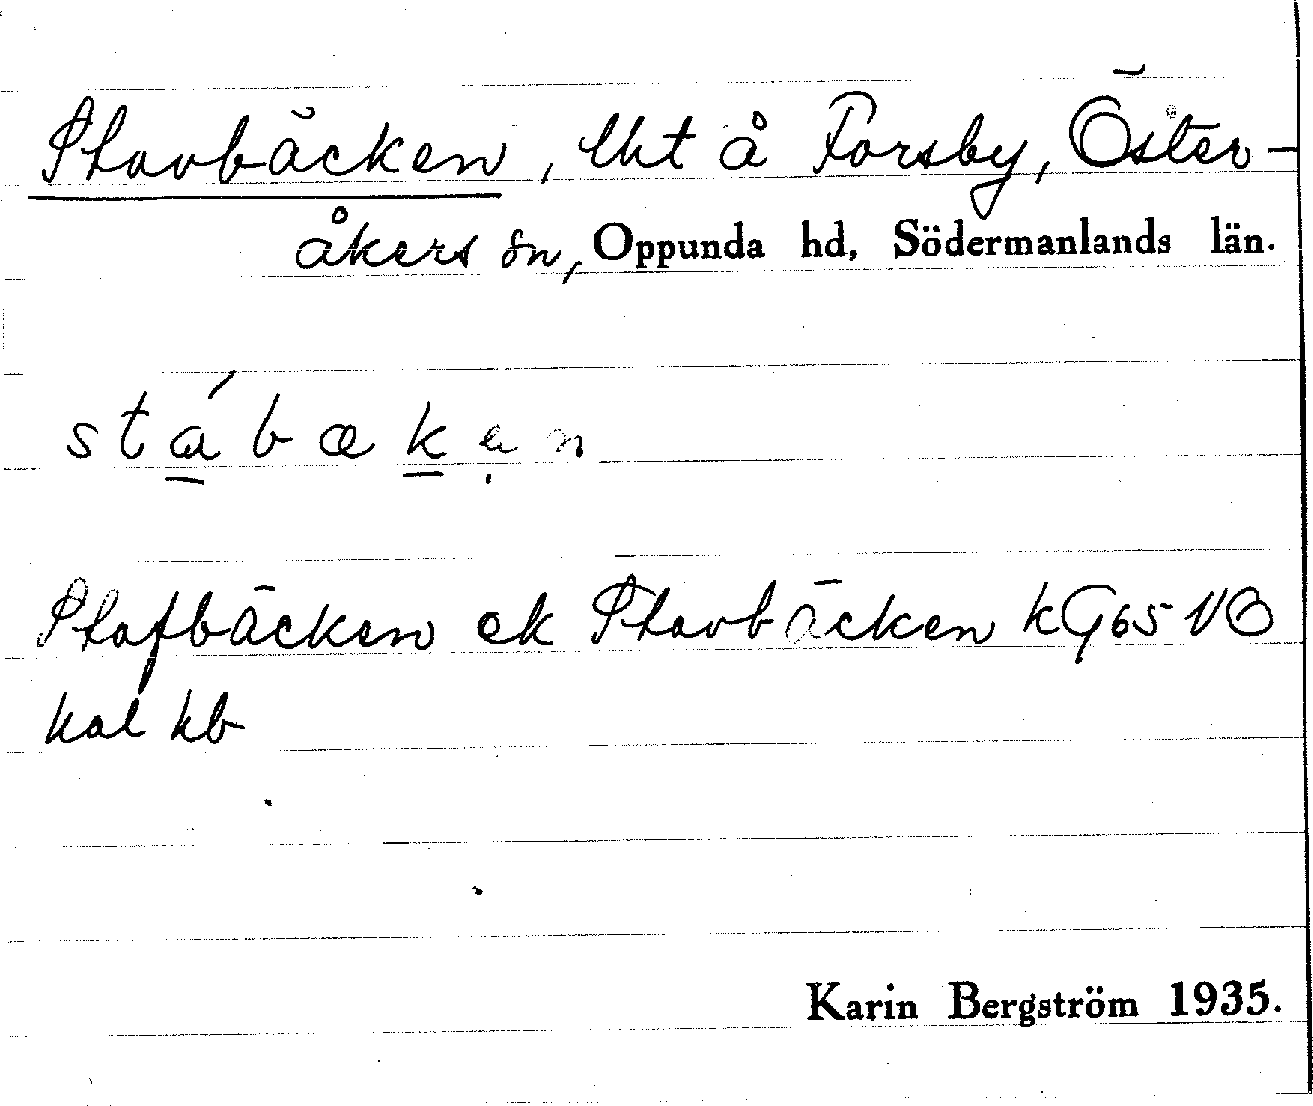 Stavbäcken, lht å Forsby, Öster-
åkers sn, Oppunda hd, Södermanlands län.
stábækən
Stafbäcken ek Stavbäcken kG65 VO
kal kb
Karin Bergström 1935.